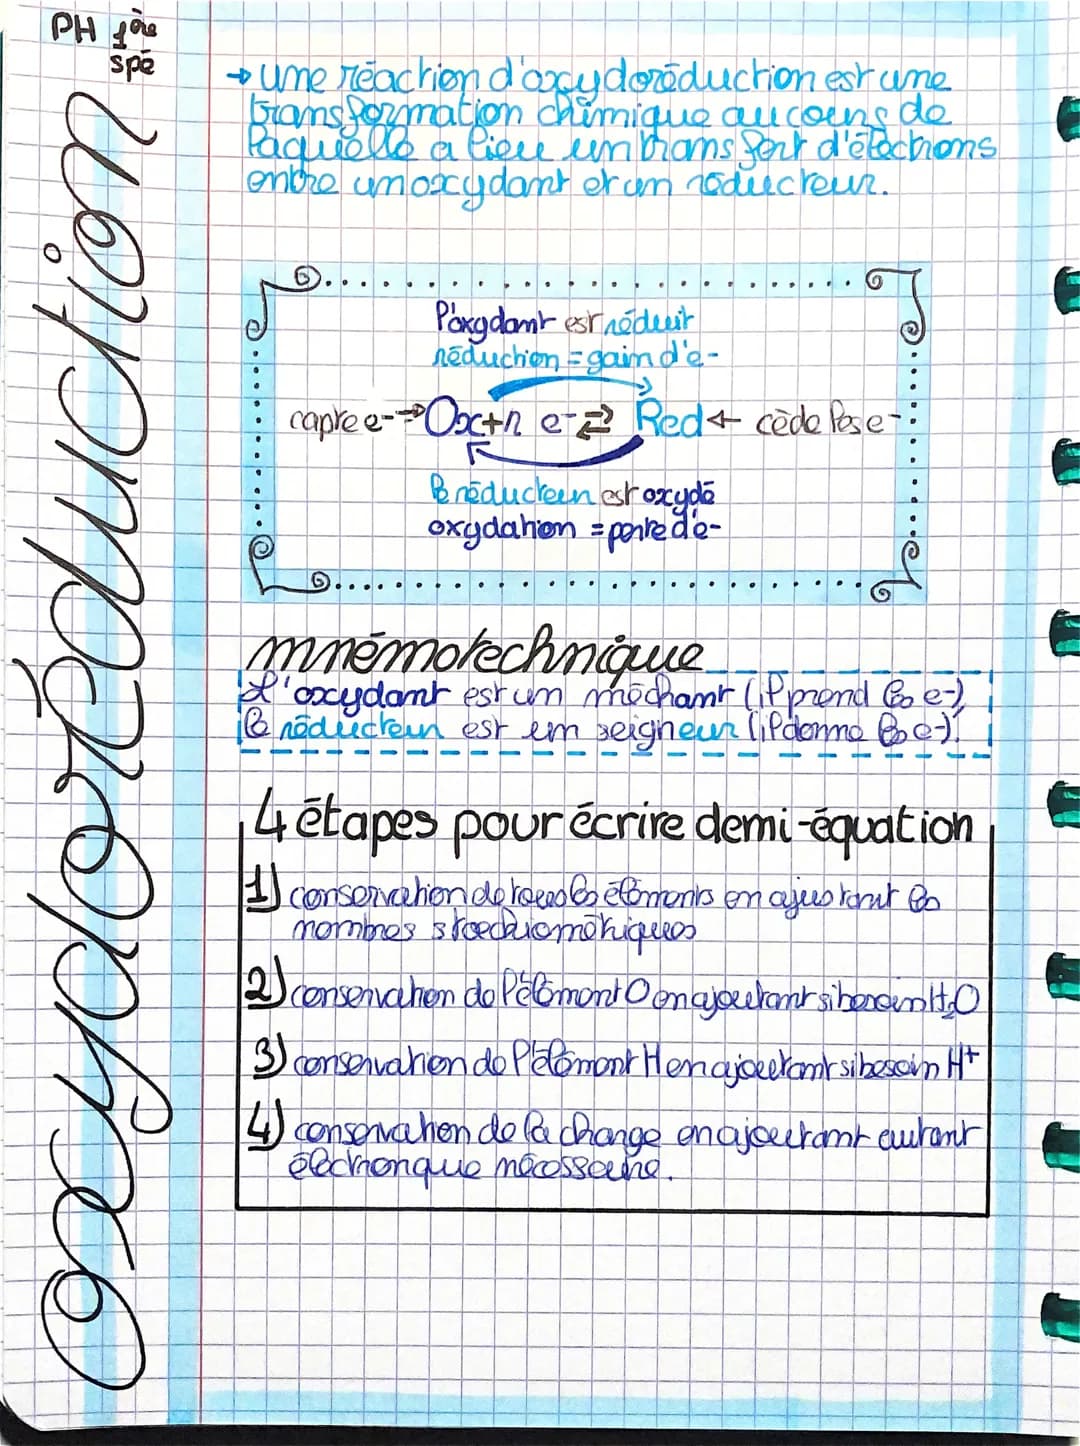 PH 1ère
spé
oxydoréduction
→ une réaction d'oxydoréduction est une
transformation chimique au cours de
laquelle a lieu un transfert d'électrons
entre un oxydant et un réducteur.
l'oxydant est réduit
réduction = gain d'e-
capte e- → Ox + n e- ⇄ Red ← cède les e-
le réducteur est oxydé
oxydation = perte d'e-
mnémotechnique
L'oxydant est un méchant (il prend les e-),
le réducteur est un seigneur (il donne les e-).
4 étapes pour écrire demi-équation
1) conservation de tous les éléments en ajustant les
nombres stoechiométriques
2) conservation de l'élément O en ajoutant si besoin H₂O
3) conservation de l'élément H en ajoutant si besoin H+
4) conservation de la charge en ajoutant autant
électron que nécessaire.